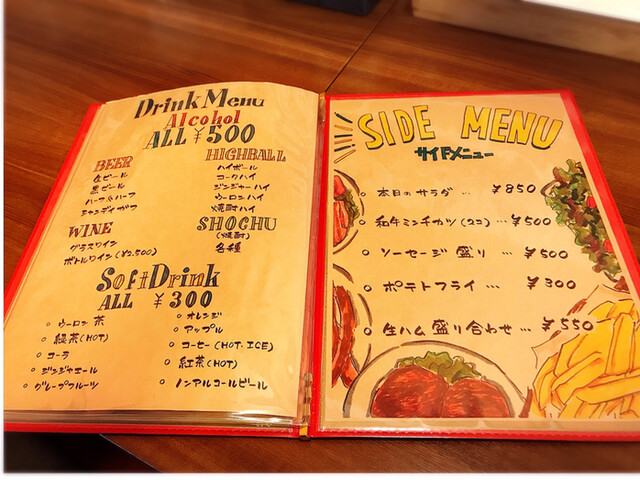 Drink Menu
Alcohol
ALL ¥500
BEER
生ビール
黒ビール
ハーフ&ハーフ
シャンディガフ
WINE
グラスワイン
ボトルワイン(¥2,500)
HIGHBALL
ハイボール
コークハイ
ジンジャーハイ
ウーロンハイ
焼酎ハイ
SHOCHU
(焼酎)
各種
Soft Drink
ALL ¥300
○ ウーロン茶
○ 緑茶(HOT)
○ コーラ
○ ジンジャエール
○ グレープフルーツ
○ オレンジ
○ アップル
○ コーヒー(HOT,ICE)
○ 紅茶(HOT)
○ ノンアルコールビール
SIDE MENU
サイドメニュー
○ 本日のサラダ … ¥850
○ 和牛ミンチカツ(2コ) … ¥500
○ ソーセージ盛り … ¥500
○ ポテトフライ … ¥300
○ 生ハム盛り合わせ … ¥550